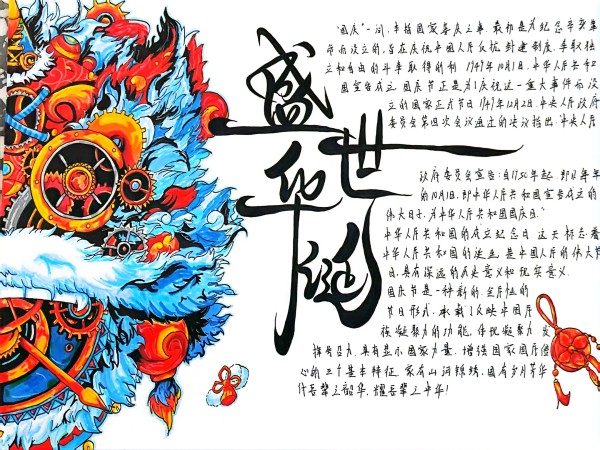 盛世华诞
"国庆"一词,本指国家喜庆之事,最初是为纪念辛亥革
命而设立的,旨在庆祝中国人民反抗封建制度,争取独
立和自由的斗争取得胜利 1949年10月1日,中华人民共和
国宣告成立 国庆节正是为了庆祝这一重大事件而设
立的国家正式节日 1949年12月2日,中央人民政府
委员会第四次会议通过的决议指出:"中央人民
政府委员会宣告:自1950年起,即以每年
的10月1日,即中华人民共和国宣告成立的
伟大日子,为中华人民共和国国庆日."
中华人民共和国的成立纪念日 这天标志着
中华人民共和国的诞生,是中国人民的伟大节
日,具有深远的历史意义和现实意义.
国庆节是一种新的、全民性的
节日形式,承载了反映中国民
族凝聚力的功能,体现凝聚力 发
挥号召力,具有显示国家力量、增强国家国民信
心的三个基本特征 家有山河锦绣,国有岁月芳华
代吾辈之韶华,耀吾辈之中华!